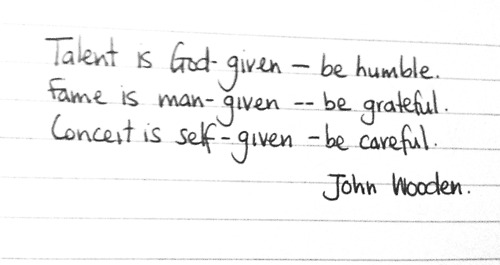 Talent is God-given – be humble.
Fame is man-given -- be grateful.
Conceit is self-given – be careful.
John Wooden.